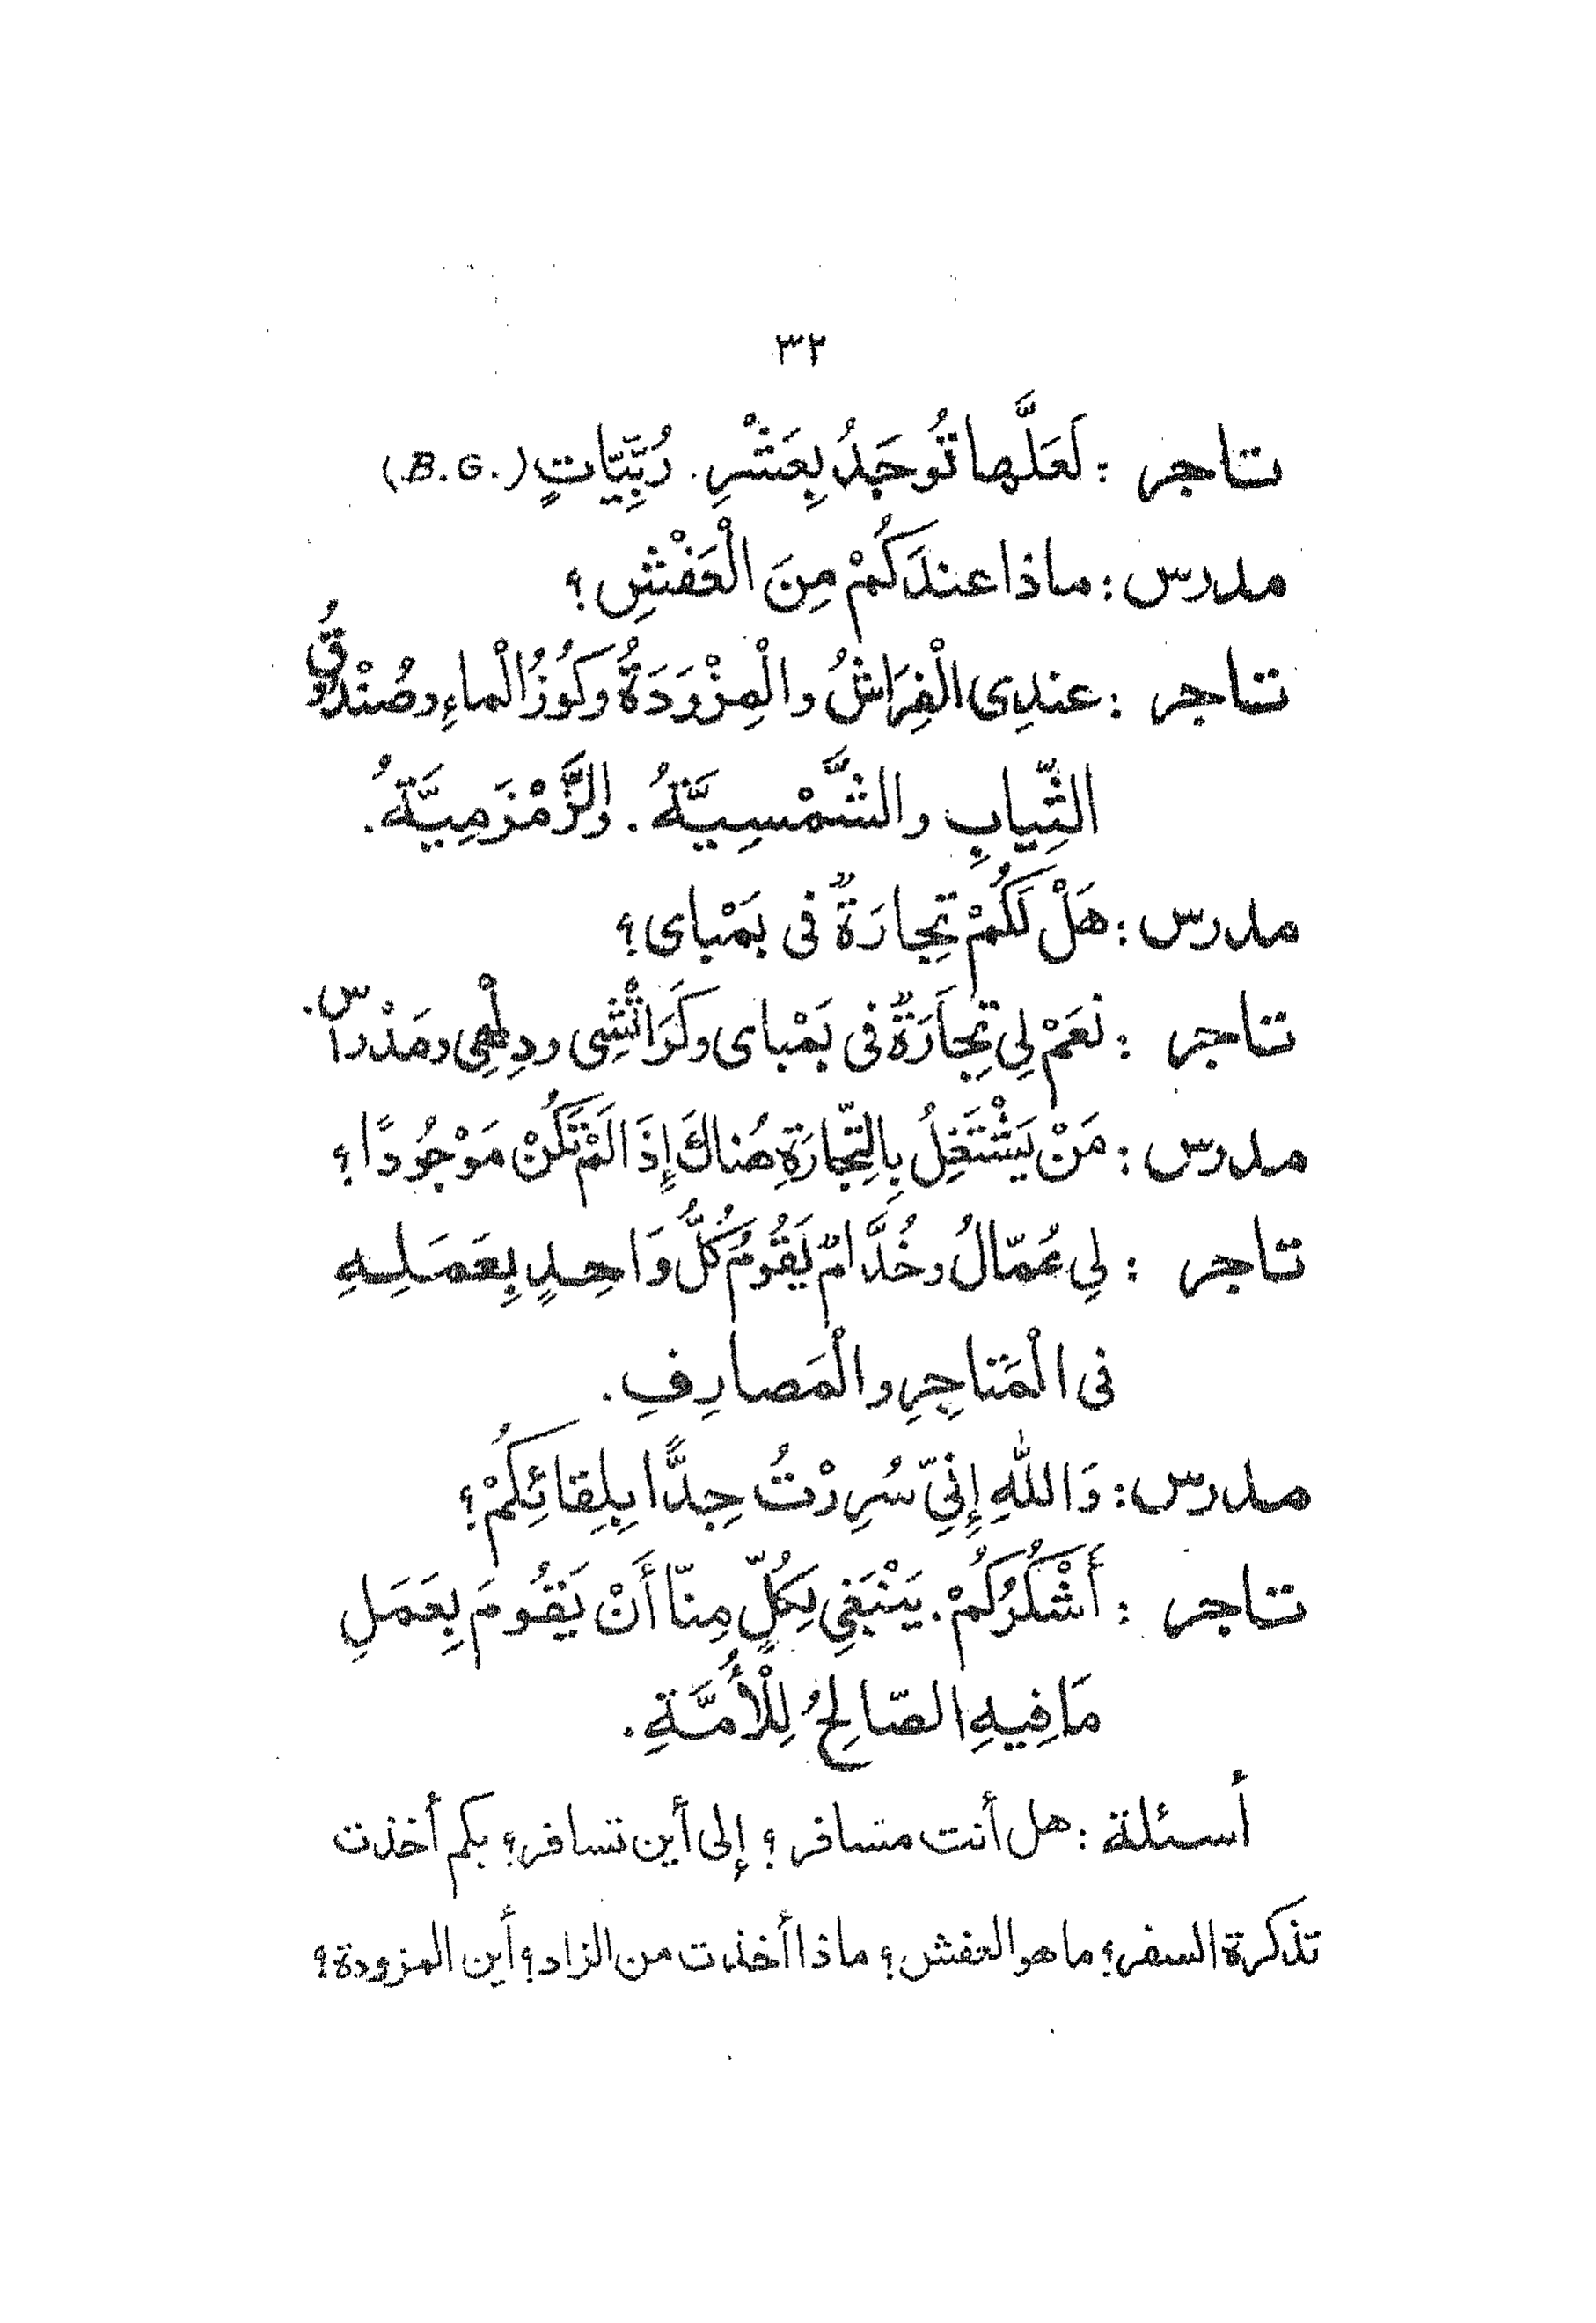 ٣٢
تاجر : لَعَلَّها تُوجَدُ بِعَشْرِ. رُبِّيّاتٍ (B.G.)
مدرس : ماذا عندَكُمْ مِنَ الْعَفْشِ ؟
تاجر : عندِى الْفِرَاشُ والْمِزْوَدَةُ وكُوْزُ الْماءِ وصُنْدُوقُ
الثِّيابِ والشَّمْسِيَّةُ. والزَّمْزَمِيَّةُ.
مدرس : هَلْ لَكُمْ تِجارَةٌ فى بَمْباى ؟
تاجر : نَعَمْ لِي تِجَارَةٌ فى بَمْباى وكَرَاتْشِى ودِلْهِى ومَدْراس.
مدرس : مَنْ يَشْتَغِلُ بِالتِّجَارَةِ هُناكَ إِذَا لَمْ تَكُنْ مَوْجُودًا ؟
تاجر : لِي عُمّالُ وخُدَّامٌ يَقُومُ كُلُّ وَاحِدٍ بِعَمَلِهِ
فى الْمَتاجِرِ والْمَصارِفِ.
مدرس : وَاللّٰهِ إِنِّي سُرِرْتُ جِدًّا بِلِقائِكُمْ ؟
تاجر : أَشْكُرُكُمْ. يَنْبَغِي لِكُلٍّ مِنّا أَنْ يَقُومَ بِعَمَلِ
مَا فِيهِ الصّالِحُ لِلْأُمَّةِ.
أسئلة : هل أنت مسافر ؟ إلى أين تسافر ؟ بكم أخذت
تذكرة السفر ؟ ما هو العفش ؟ ماذا أخذت من الزاد ؟ أين المزودة ؟